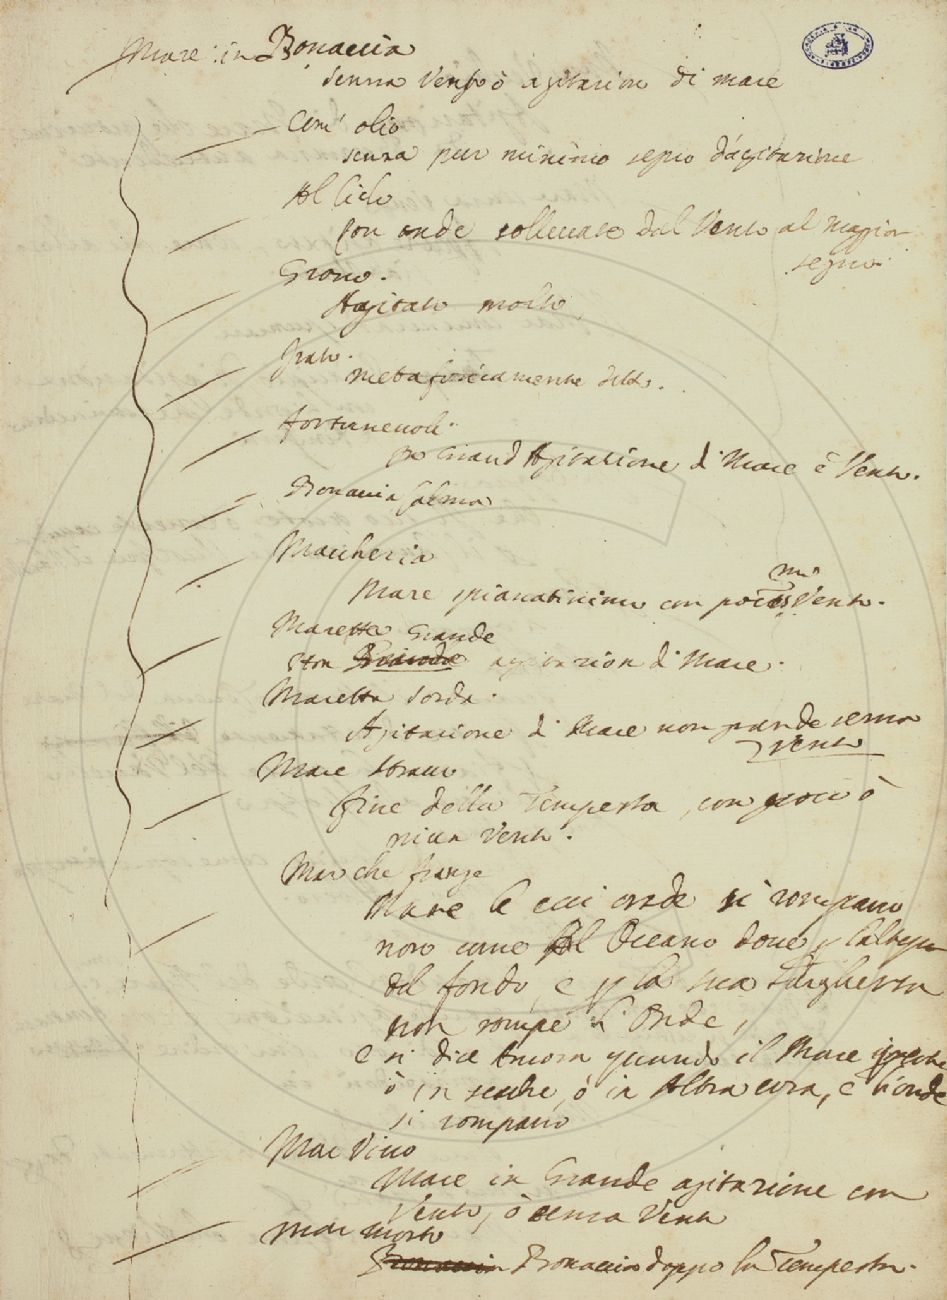 Mare in Bonaccia
senza vento ò agitazion di mare
Com' olio
senza pur minimo segno d'agitazione
Al Cielo
con onde sollevate dal Vento al maggior
segno.
Grosso.
Agitato molto
grato.
metaforicamente detto.
fortunevole
grand Agitazione di Mare e Vento.
Bonaccia calma
Maccheria
Mare spianatissimo con pochismo Vento.
Maretta Grande
agitazion di Mare.
Maretta sorda.
Agitazione di Mare non grande senza
Vento
Mare stracco
fine della Tempesta, con poco ò
niun Vento.
Mar che frange
Mare le cui onde si rompano
non come l'Oceano dove p l'altezza
del fondo, e p la sua larghezza
non rompe l'Onde,
e si dice Ancora quando il Mare
ò in secche, ò in Altra cosa, e l'onde
si rompano
Mar Vivo
Mare in Grande agitazione con
Vento, ò senza Vento
Mar morto
Bonaccia doppo la Tempesta.